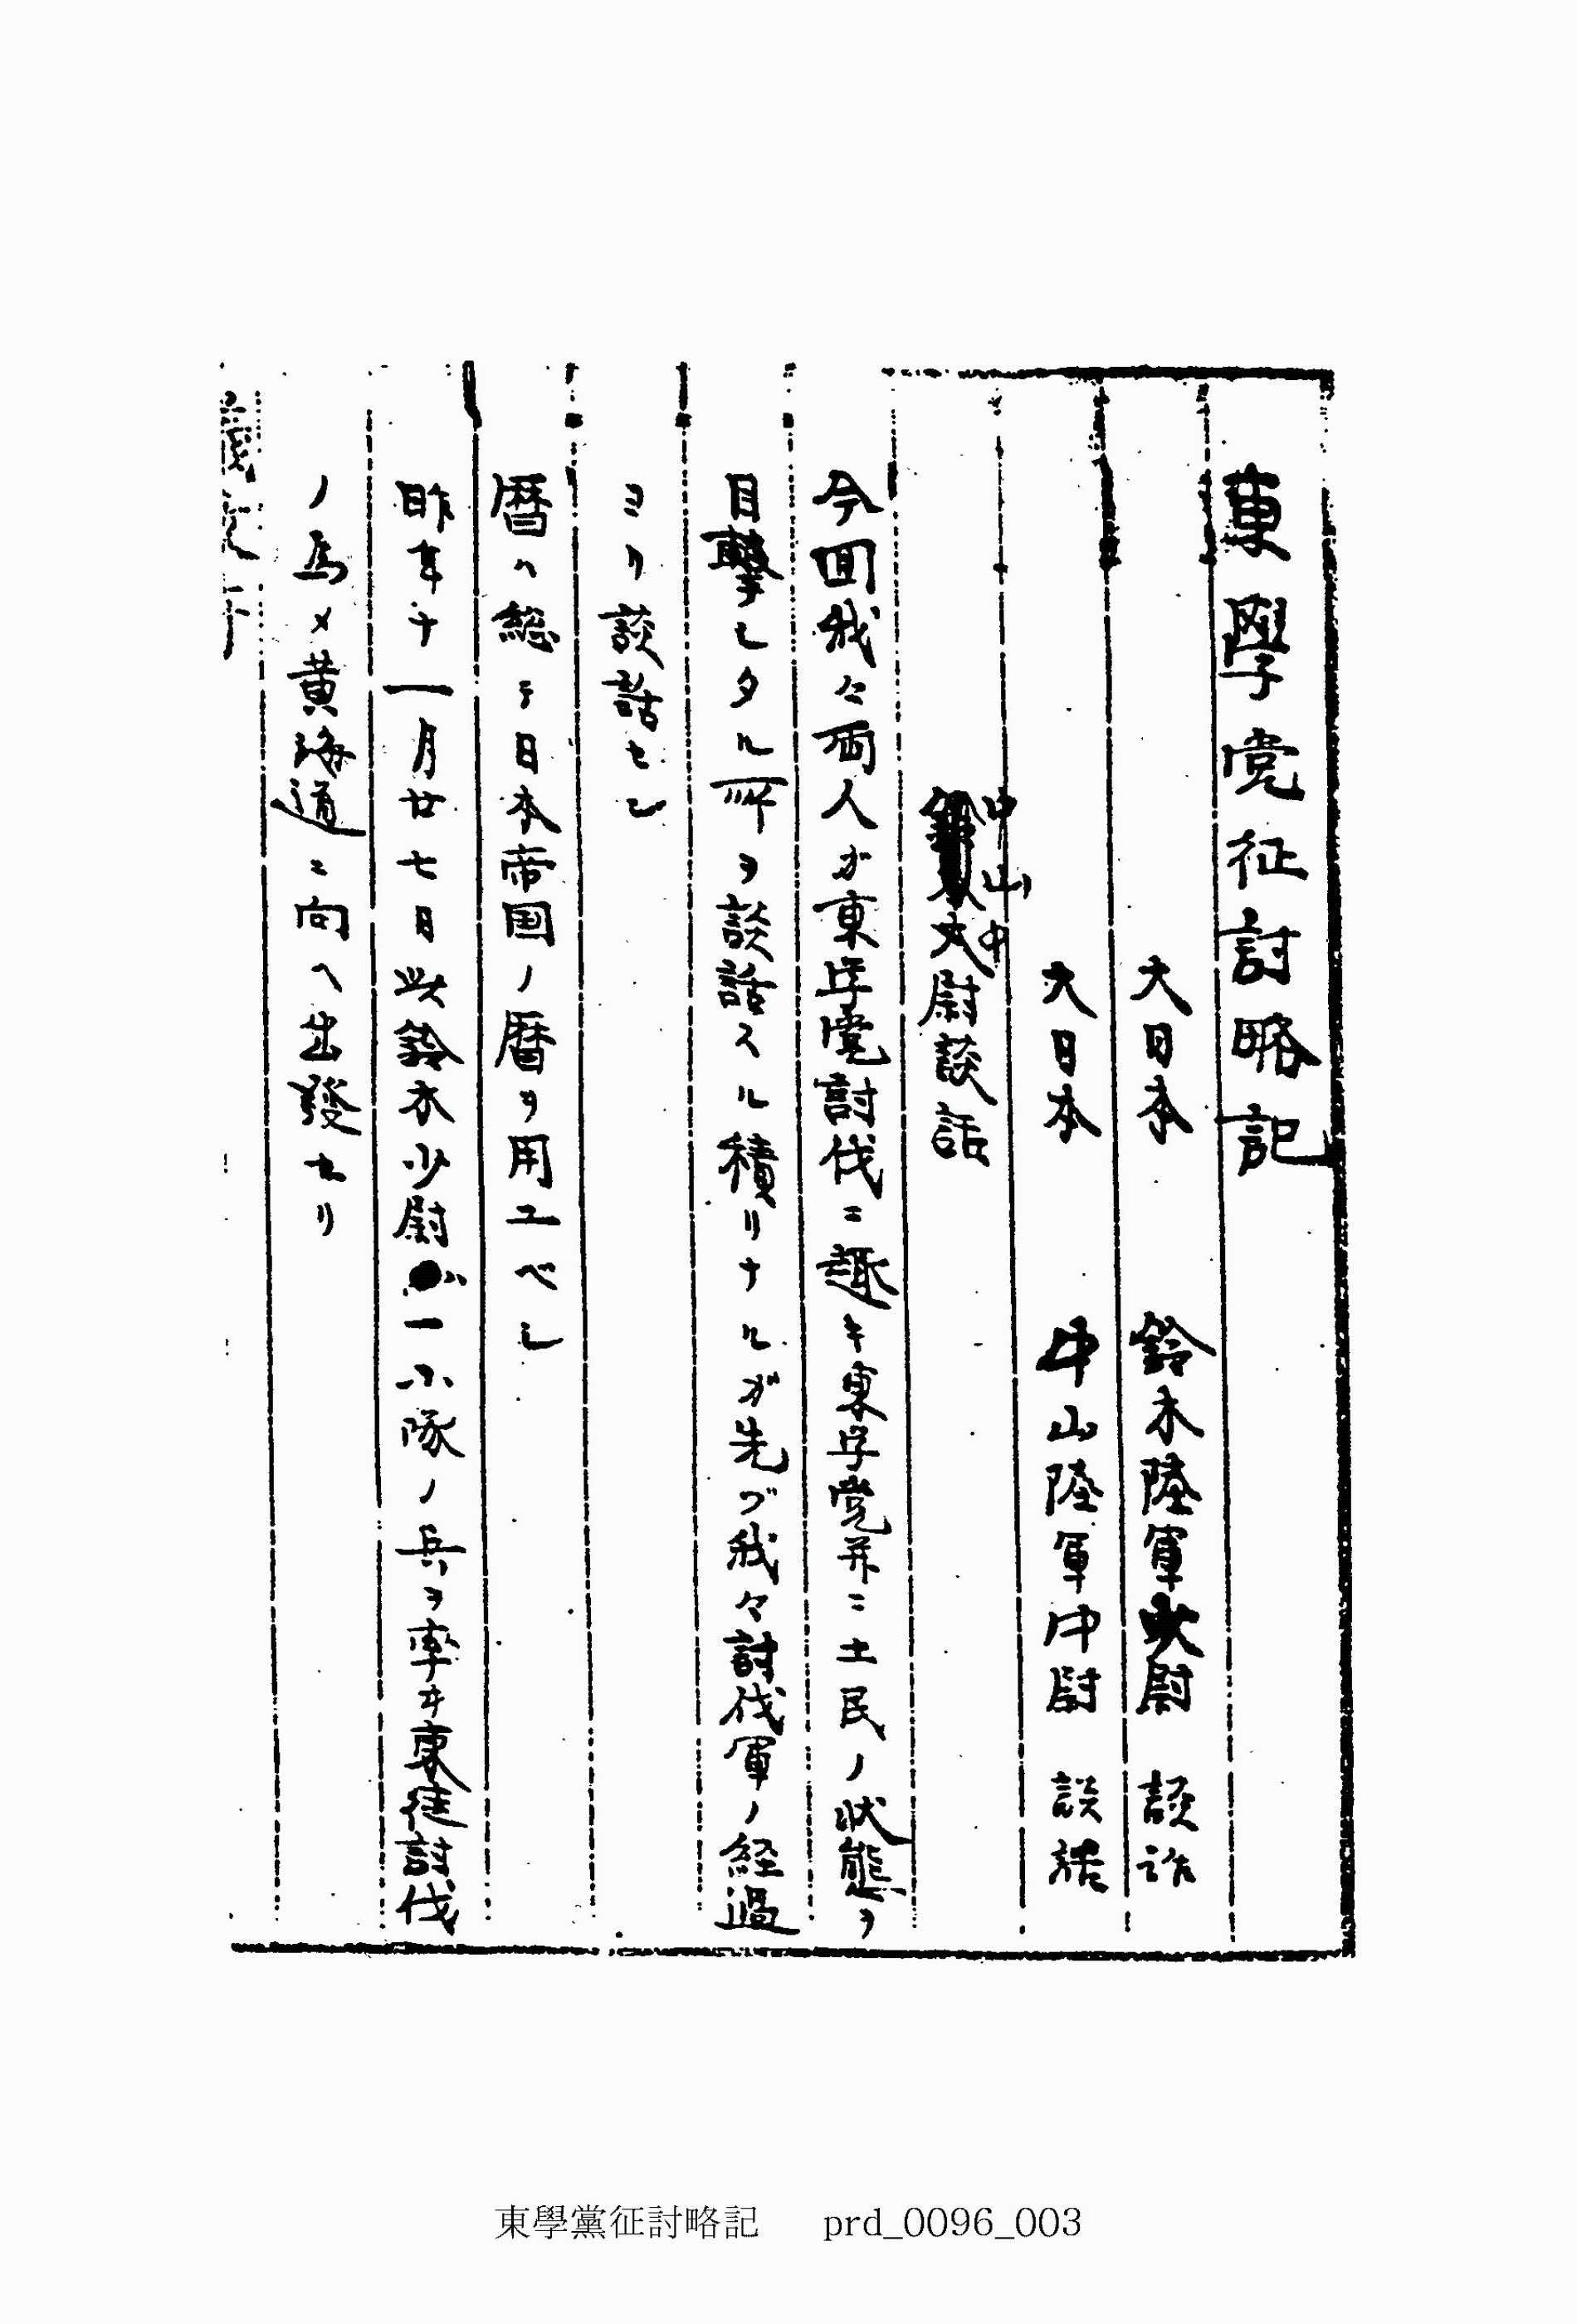 東學党征討略記
大日本 鈴木陸軍少尉 談話
大日本 中山陸軍中尉 談話
中山中
尉談話
今回我々両人ガ東学党討伐ニ趣キ東学党并ニ土民ノ状態ヲ
目撃シタル所ヲ談話スル積リナルガ先ヅ我々討伐軍ノ経過
ヨリ談話セン
暦ハ総テ日本帝国ノ暦ヲ用ユベシ
昨年十一月廿七日此鈴木少尉ハ一小隊ノ兵ヲ率ヰ東徒討伐
ノ為メ黄海道ニ向ヘ出發セリ
東學黨征討略記 prd_0096_003